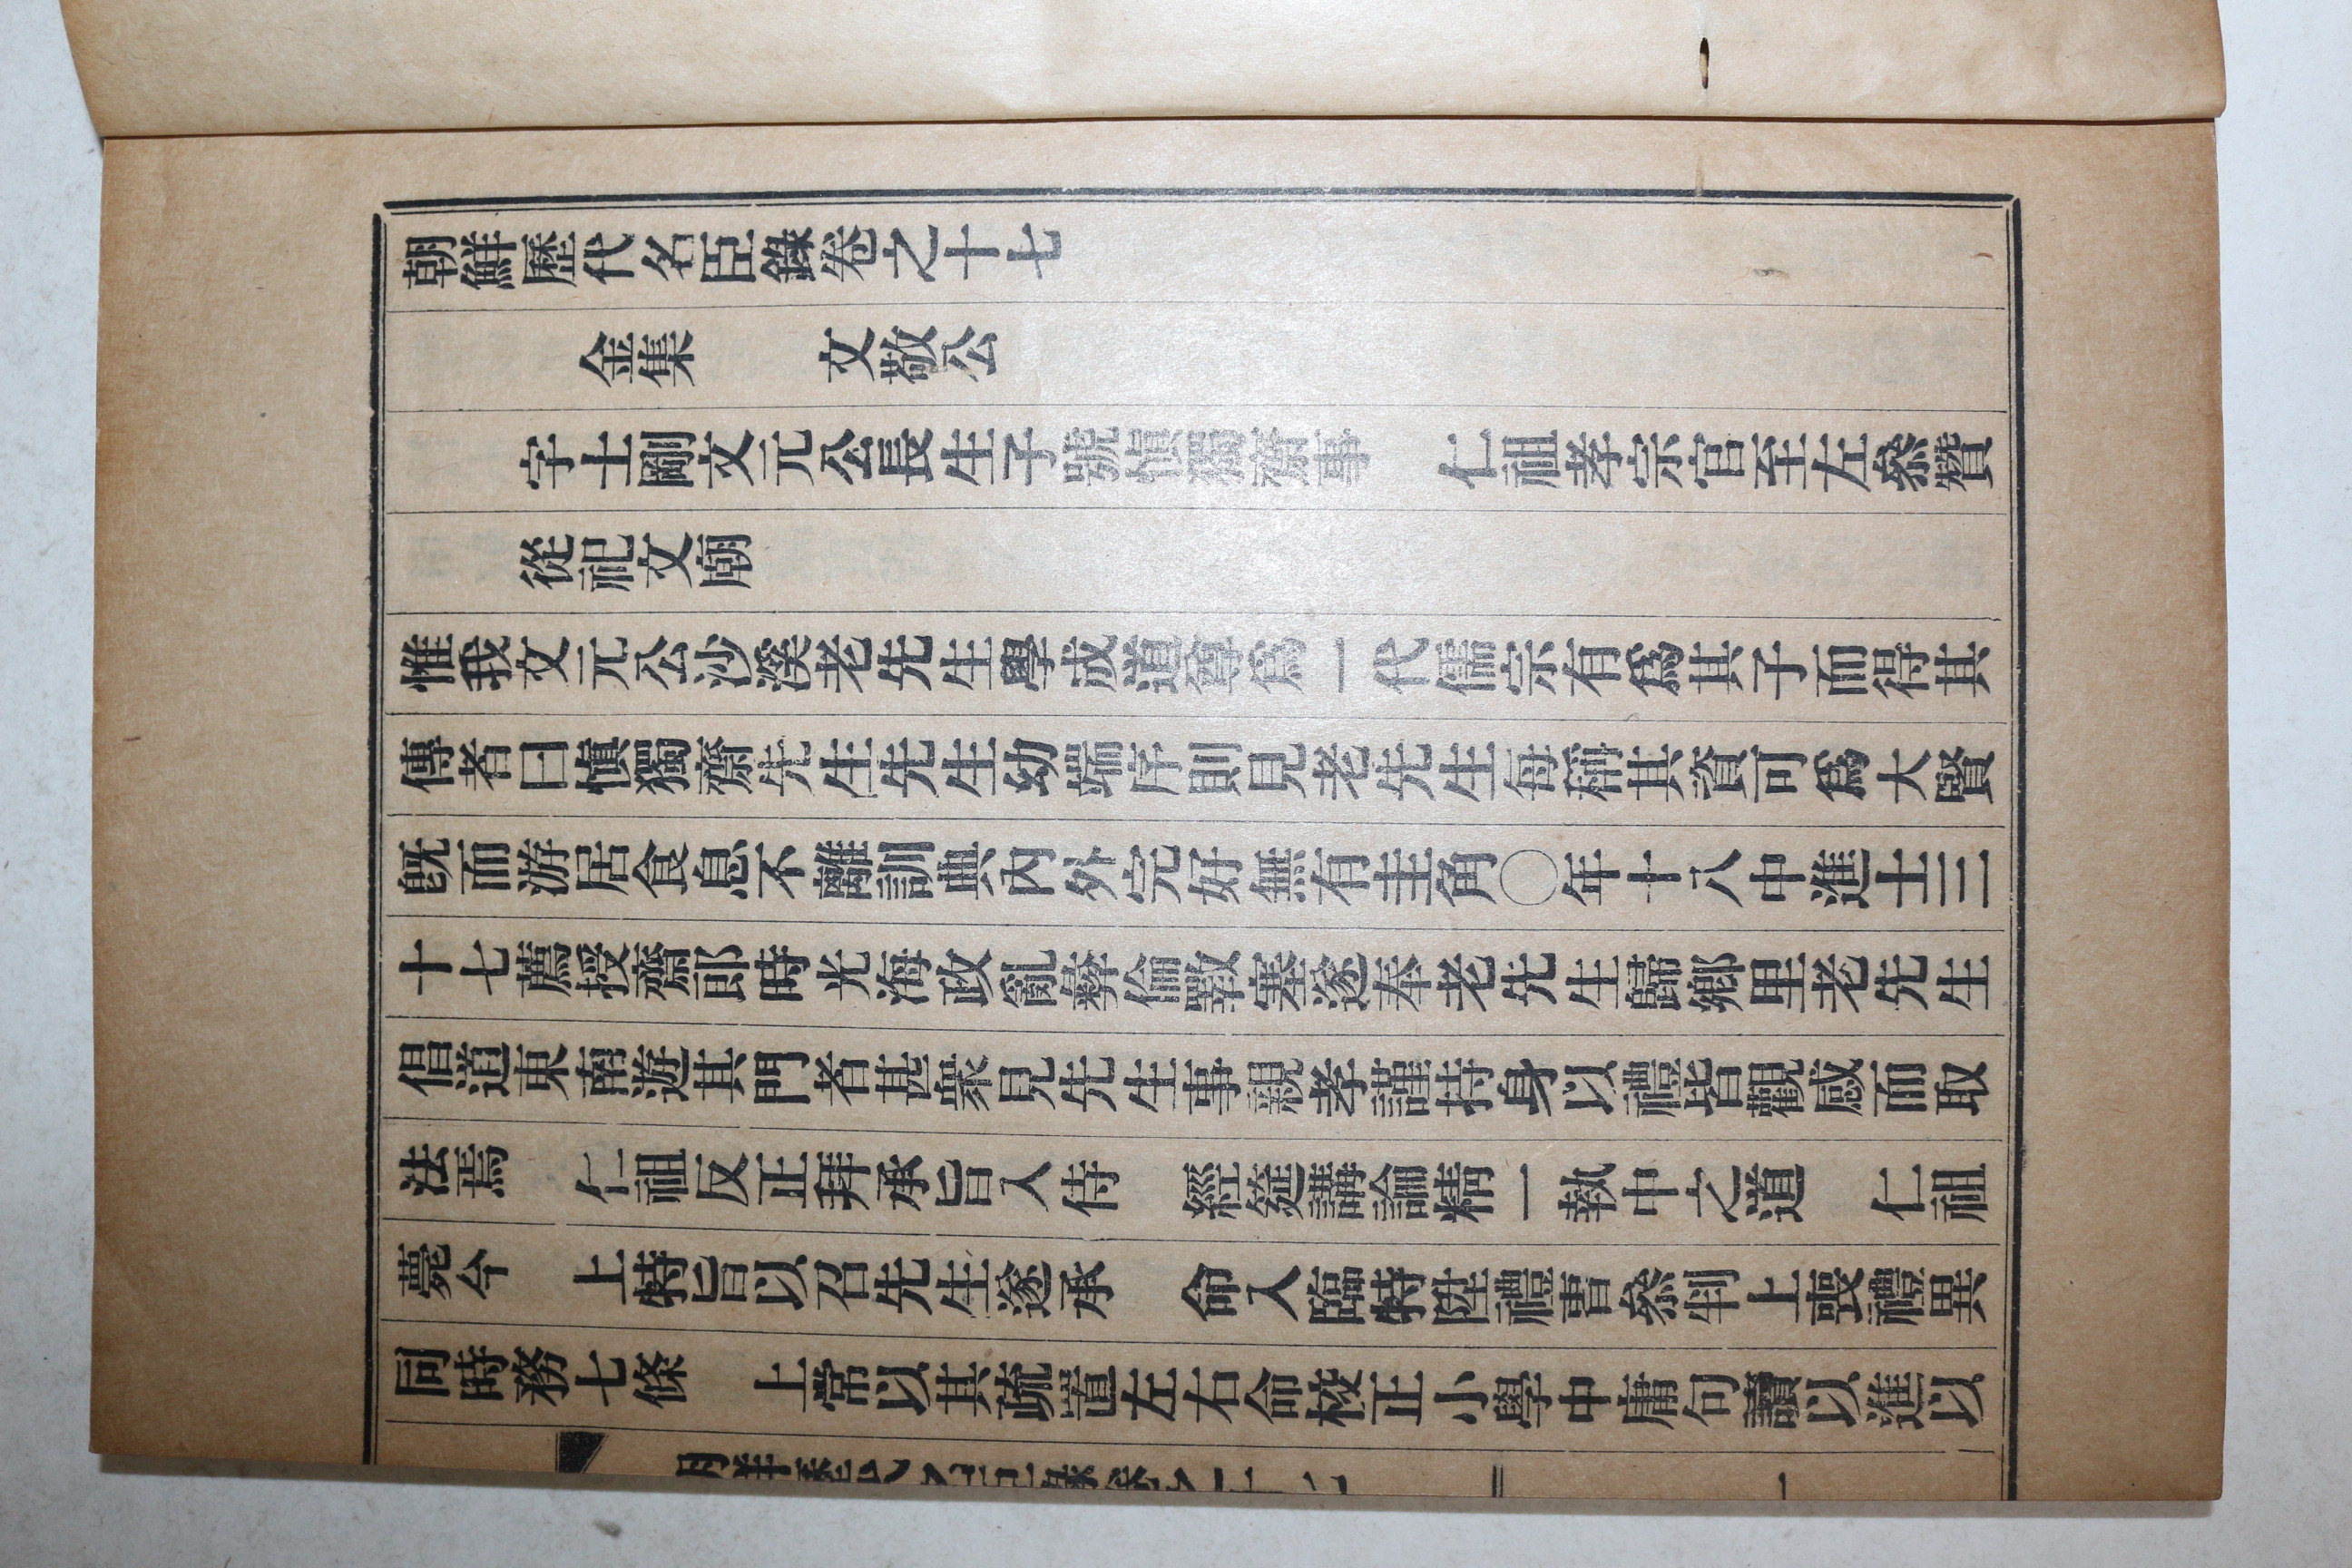 朝鮮歷代名臣錄卷之十七
金集 文敬公
字士剛文元公長生子號愼獨齋事 仁祖孝宗官至左叅贊
從祀文廟
惟我文元公沙溪老先生學成道尊爲一代儒宗有爲其子而得其
傳者曰愼獨齋先生先生幼端序則見老先生每稱其資可爲大賢
旣而游居食息不離訓典內外完好無有圭角〇年十八中進士三
十七薦授齋郎時光海政亂彜倫斁塞遂奉老先生歸鄕里老先生
倡道東南遊其門者甚衆見先生事親孝謹持身以禮皆觀感而取
法焉 仁祖反正拜承旨入侍 經筵講論精一執中之道 仁祖
薨今 上特旨以召先生遂承 命入臨特陞禮曺叅判上喪禮異
同時務七條 上常以其疏置左右命校正小學中庸句讀以進以
朝鮮歷代名臣錄卷之十七 一